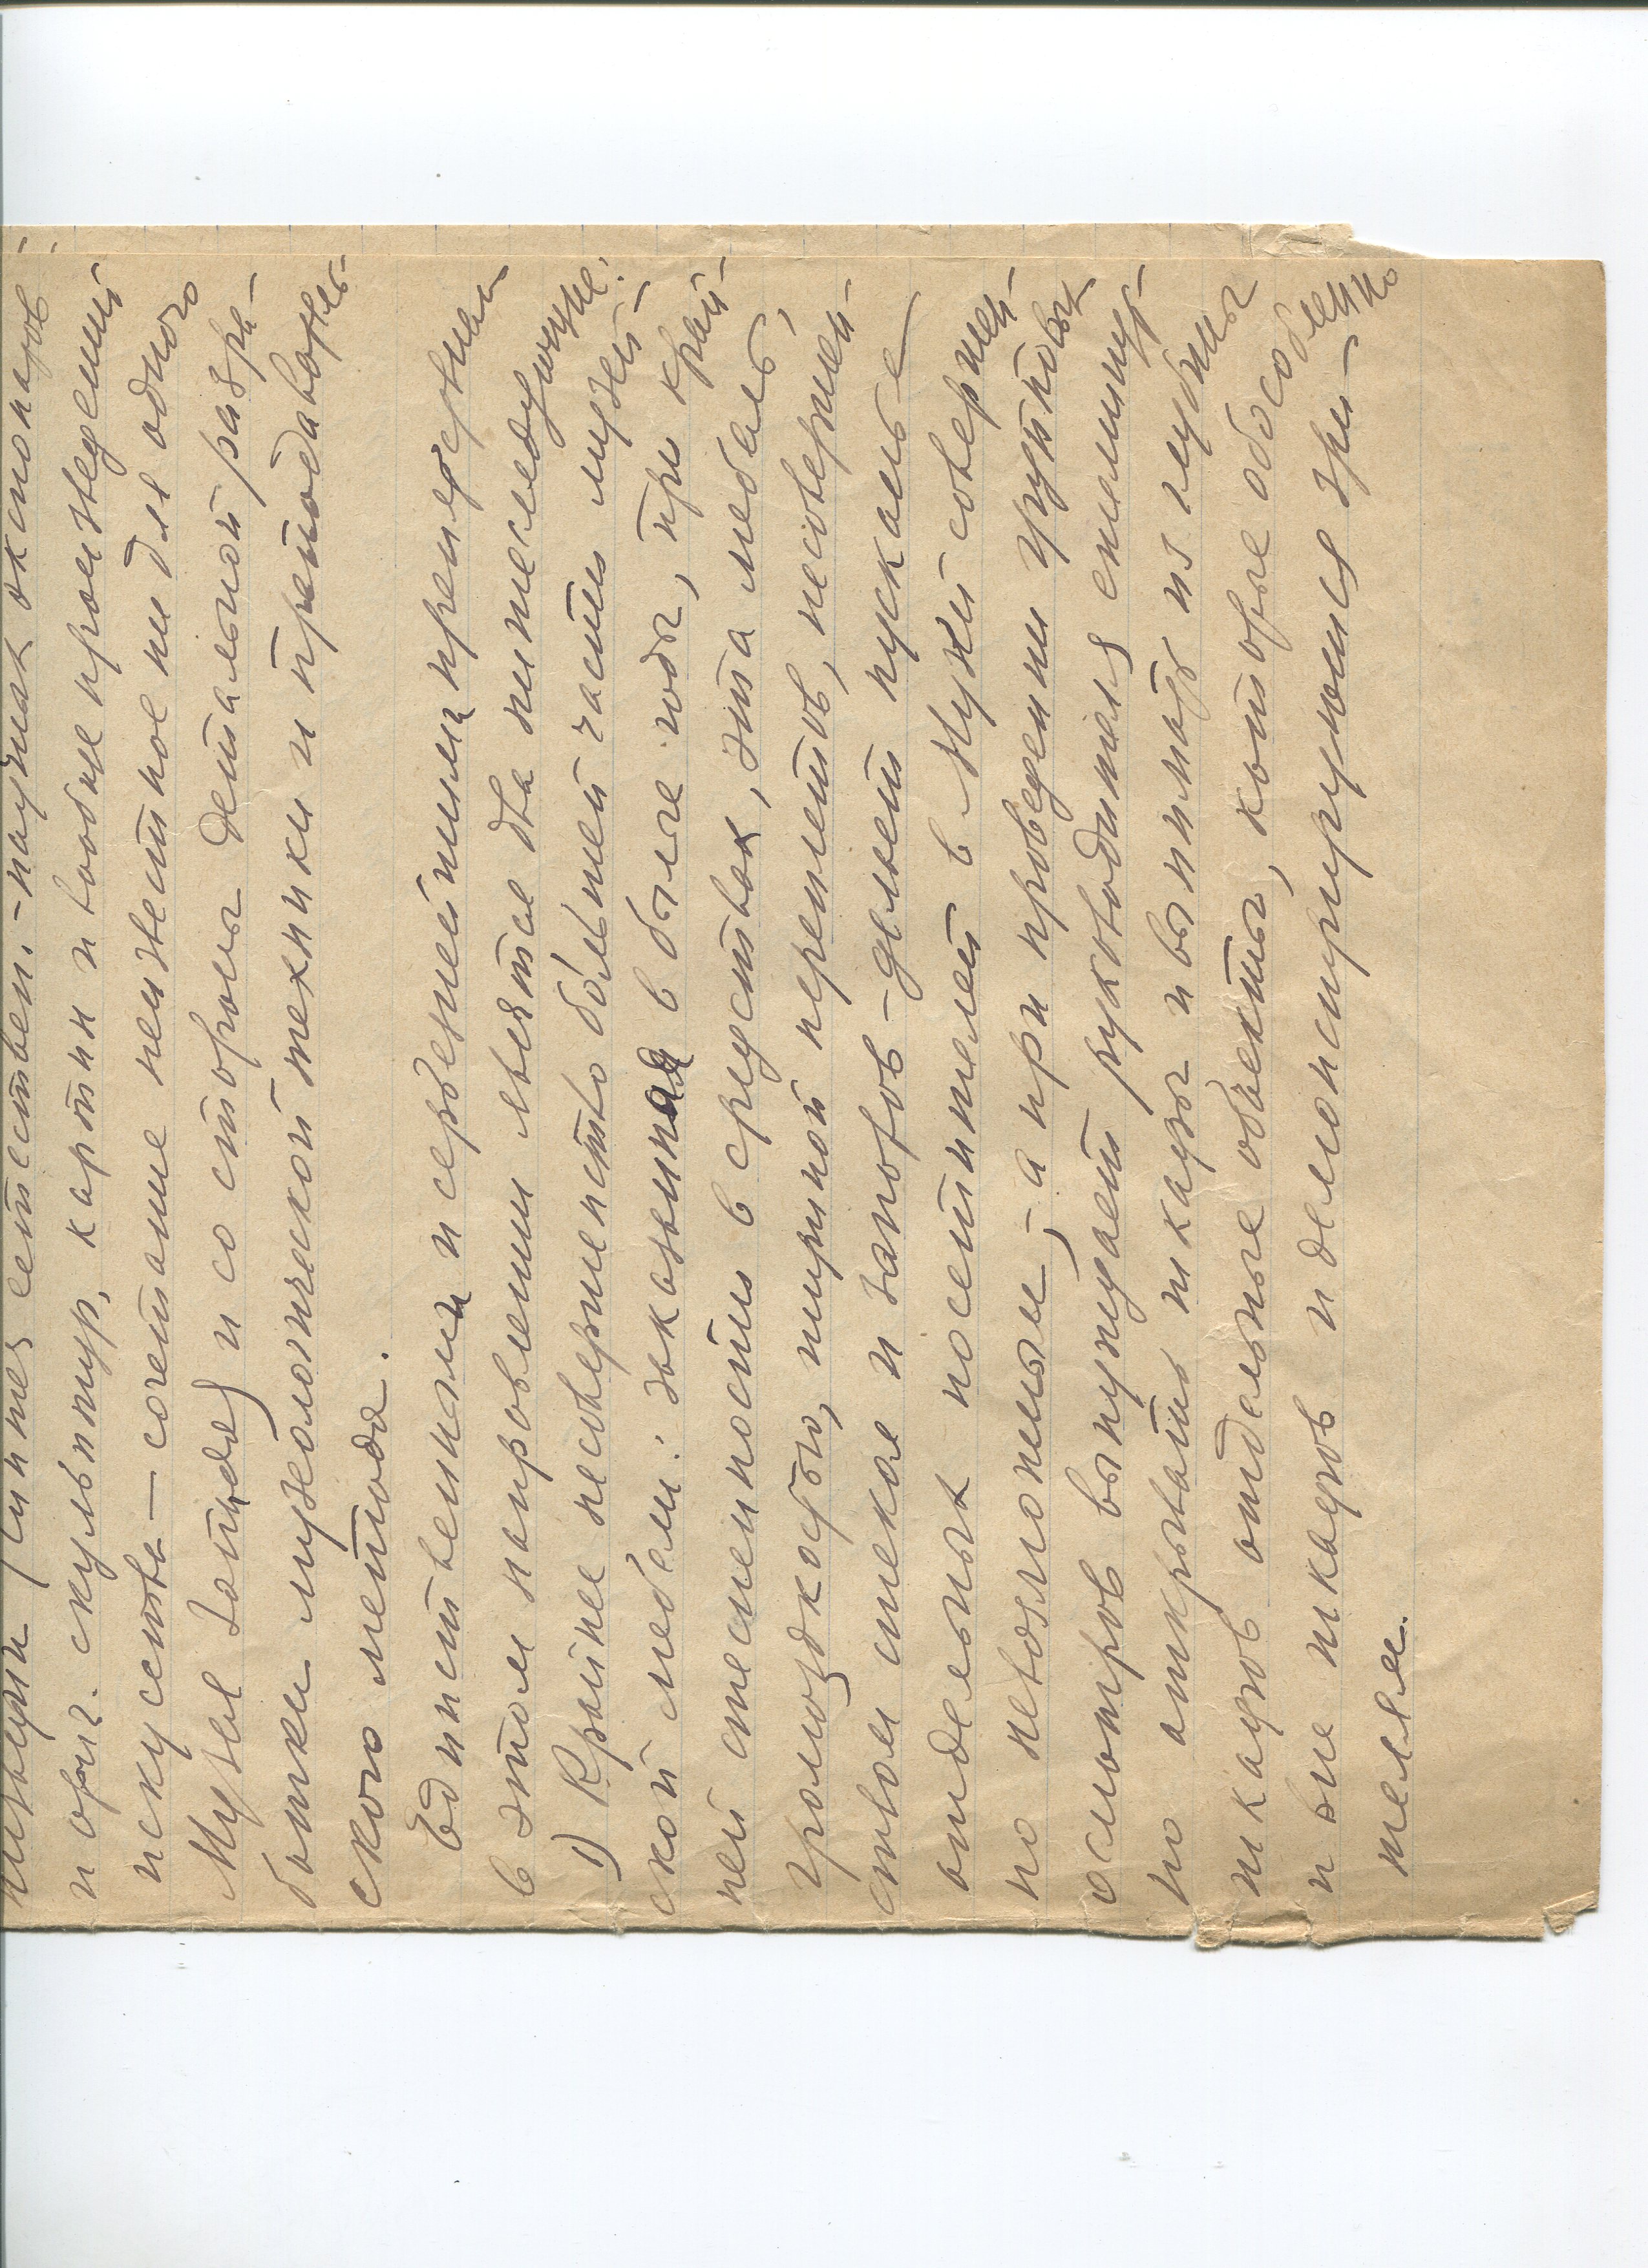 естествен.-научных экспонатов
и ориг. скульптур, картин и вообще произведений
искусства — сочетание неизвестное ни для одного
Музея Запада) и со стороны детальной разра-
ботки музеологической техники и преподаватель-
ского метода.
Единственными и серьезнейшими препятствиями
в этом направлении являются два нижеследующие:
1) Крайнее несовершенство большей части музей-
ской мебели: заказанная в былые годы, при край-
ней стесненности в средствах, эта мебель,
громоздкостью, шириной переплетов, несовершен-
ством стекол и запоров — делает пускание
отдельных посетителей в Музей совершен-
но невозможным, — а при проведении групповых
осмотров вынуждает руководителя ежеминут-
но открывать шкафы и вынимать из глубины
шкафов отдельные объекты, которые обособленно
и вне шкафов и демонстрируются зри-
телям.